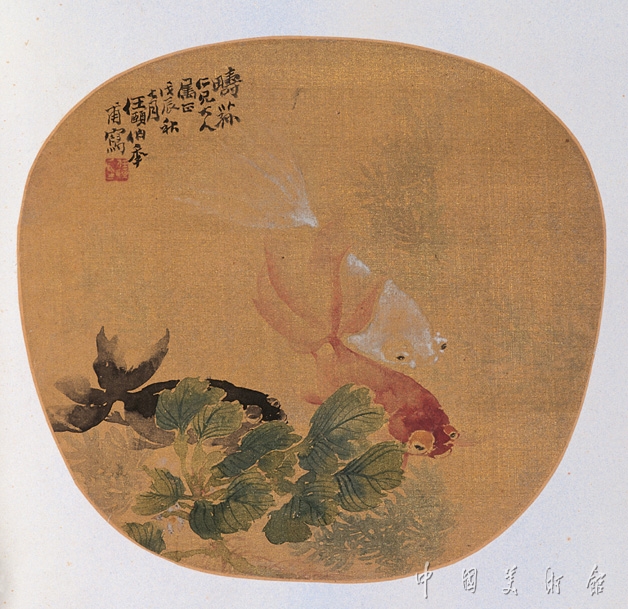 疇蓀
仁兄大人
屬正
戊辰秋
七月
任頤伯年
甫寫
中國美術館